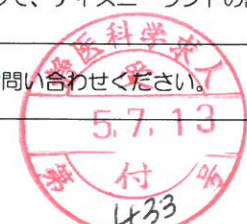 、ディズニーランドの
問い合わせください。
医科学
受
5.7.13
第 付 号
433